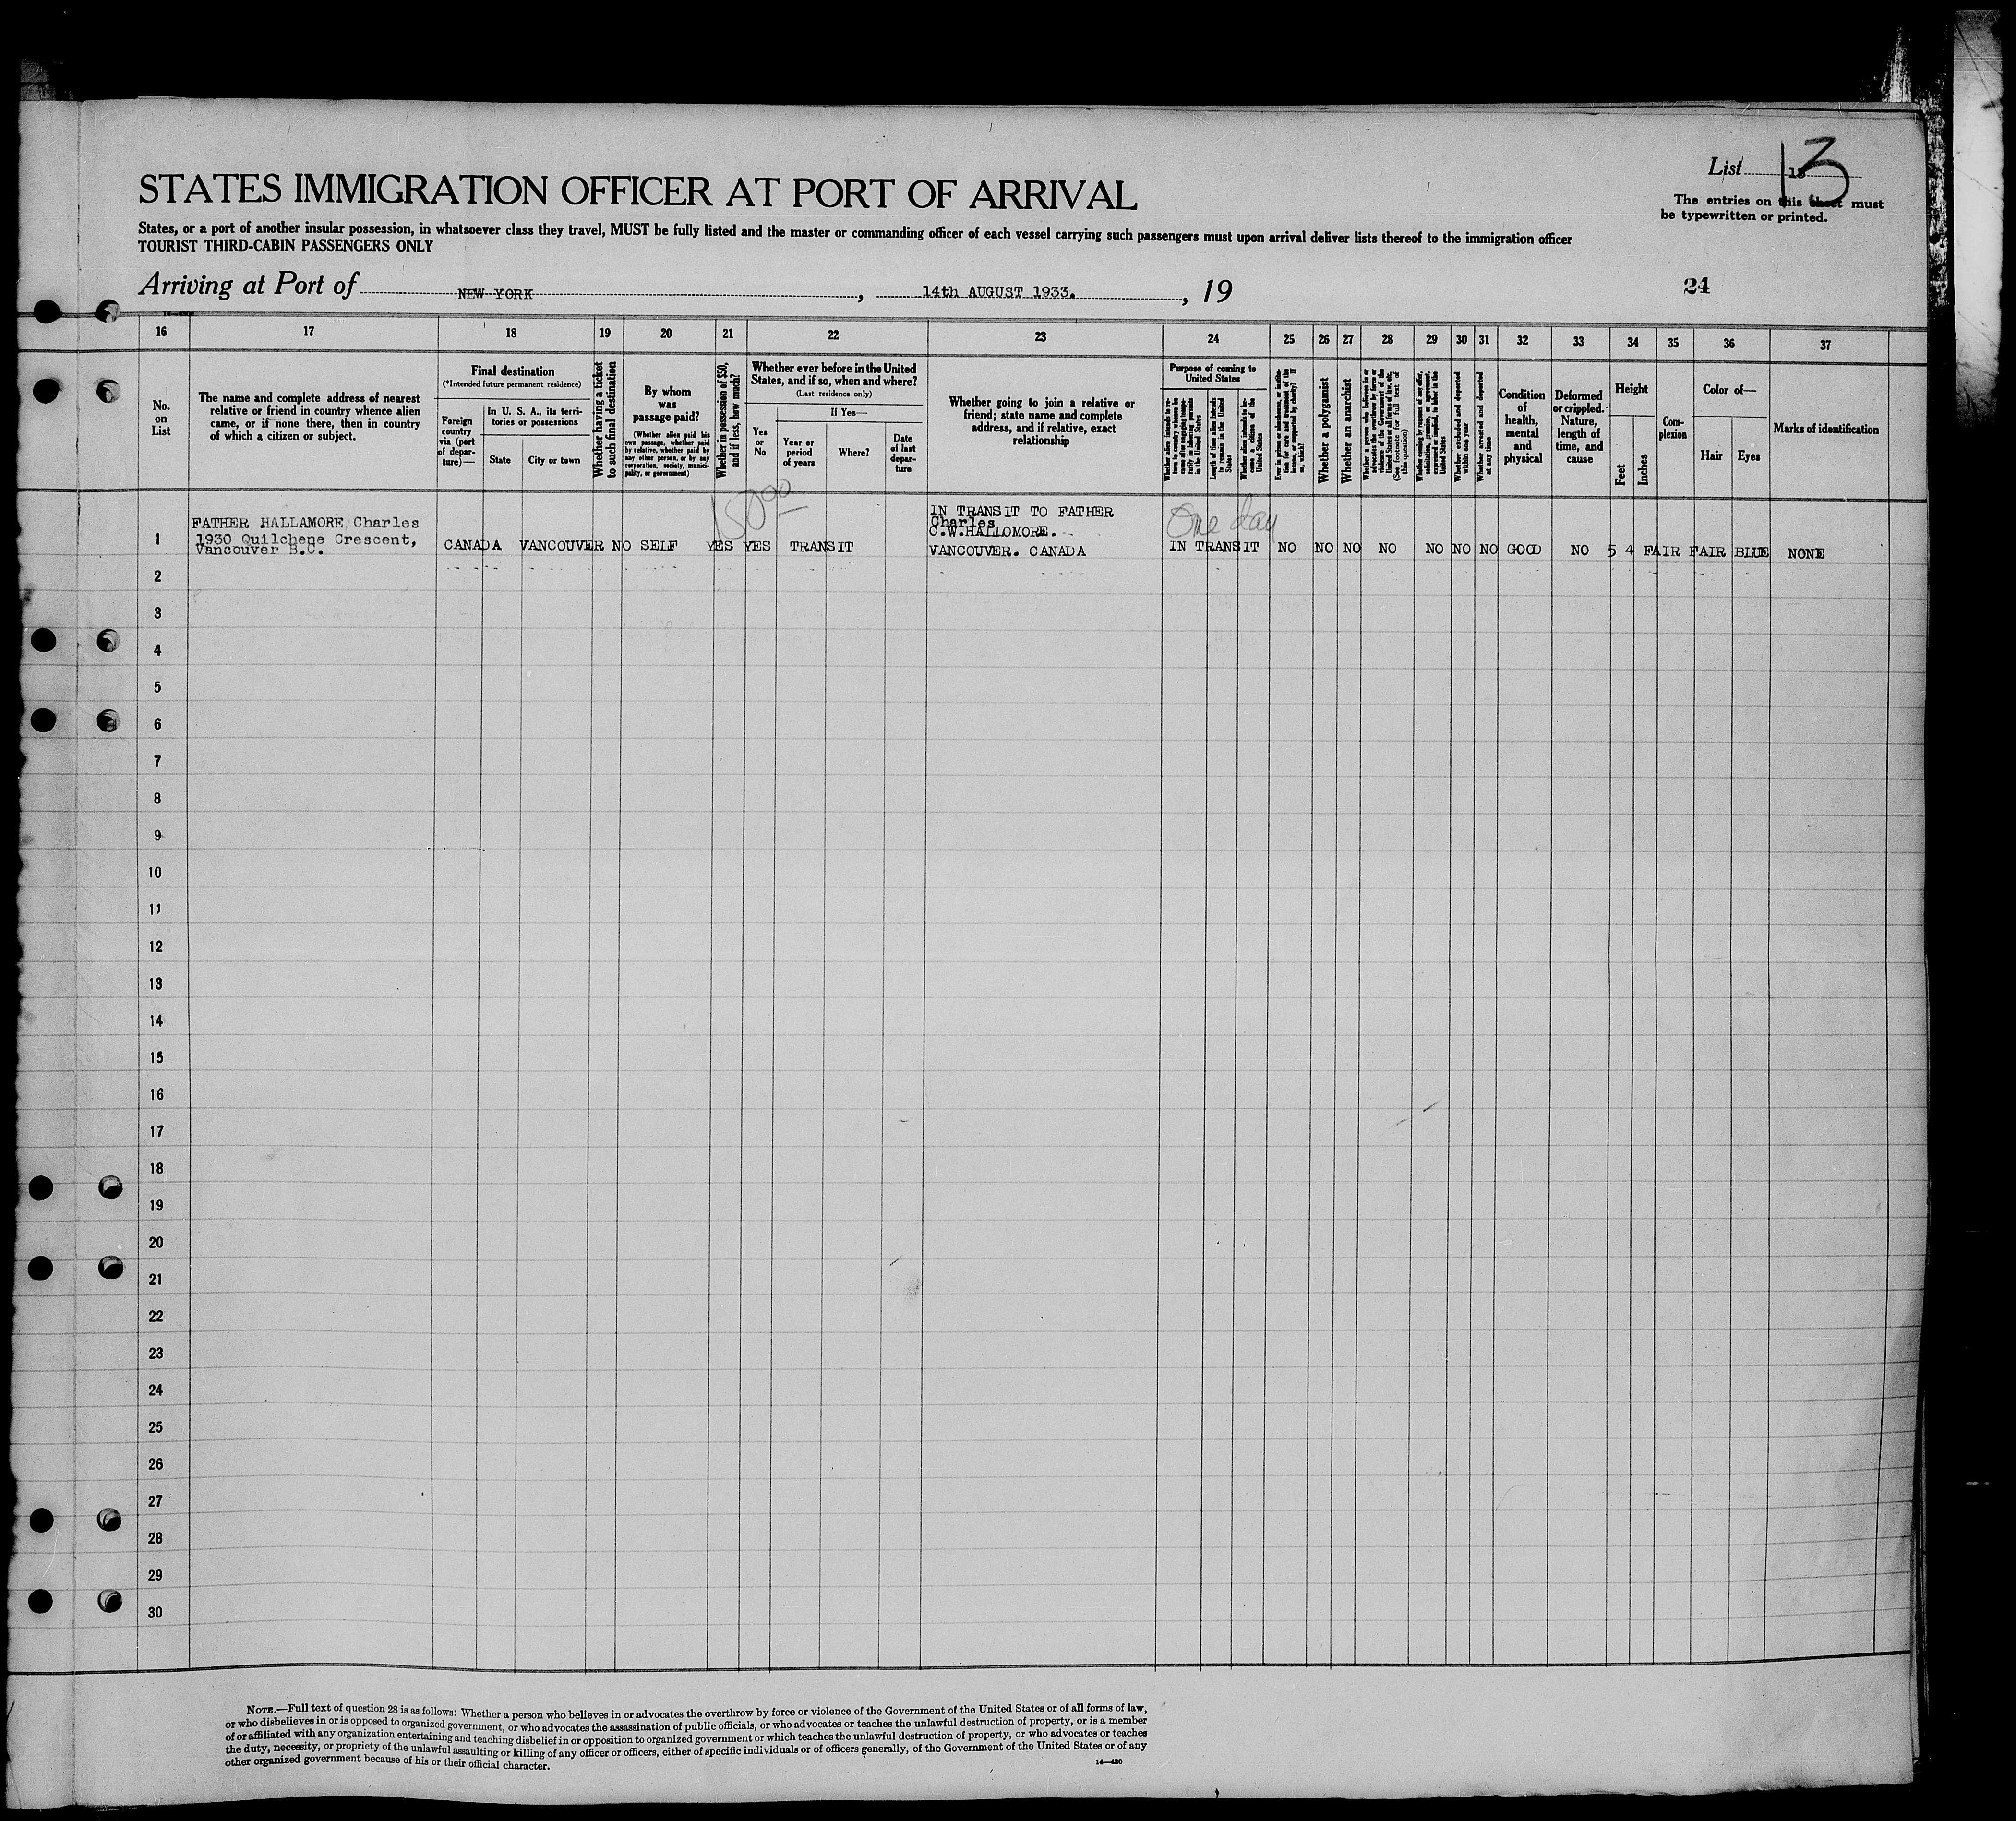 List 13
13
The entries on this sheet must
be typewritten or printed.
STATES IMMIGRATION OFFICER AT PORT OF ARRIVAL
States, or a port of another insular possession, in whatsoever class they travel, MUST be fully listed and the master or commanding officer of each vessel carrying such passengers must upon arrival deliver lists thereof to the immigration officer
TOURIST THIRD-CABIN PASSENGERS ONLY
Arriving at Port of NEW YORK, 14th AUGUST 1933., 19
24
16 17 18 19 20 21 22 23 24 25 26 27 28 29 30 31 32 33 34 35 36 37
No.
on
List
The name and complete address of nearest
relative or friend in country whence alien
came, or if none there, then in country
of which a citizen or subject.
Final destination
(*Intended future permanent residence)
Foreign
country
via (port
of depar-
ture)—
In U. S. A., its terri-
tories or possessions
State
City or town
Whether having a ticket
to such final destination
By whom
was
passage paid?
(Whether alien paid his
own passage, whether paid
by relative, whether paid by
any other person, or by any
corporation, society, munici-
pality, or government)
Whether in possession of $50,
and if less, how much?
Whether ever before in the United
States, and if so, when and where?
(Last residence only)
Yes
or
No
If Yes—
Year or
period
of years
Where?
Date
of last
depar-
ture
Whether going to join a relative or
friend; state name and complete
address, and if relative, exact
relationship
Purpose of coming to
United States
Whether alien intends to re-
turn to country whence he
came after engaging tempo-
rarily in laboring pursuits
in the United States
Length of time alien intends
to remain in the United
States
Whether alien intends to be-
come a citizen of the
United States
Ever in prison or almshouse, or institu-
tion for care and treatment of the
insane, or supported by charity? If
so, which?
Whether a polygamist
Whether an anarchist
Whether a person who believes in or
advocates the overthrow by force or
violence of the Government of the
United States or all forms of law, etc.
(See footnote for full text of
this question)
Whether coming by reasons of any offer,
solicitation, promise, or agreement,
expressed or implied, to labor in the
United States
Whether excluded and deported
within one year
Whether arrested and deported
at any time
Condition
of
health,
mental
and
physical
Deformed
or crippled.
Nature,
length of
time, and
cause
Height
Feet
Inches
Com-
plexion
Color of—
Hair
Eyes
Marks of identification
One day
FATHER HALLAMORE, Charles
1930 Quilchene Crescent,
Vancouver B.C.
IN TRANSIT TO FATHER
Charles
C.W.HALLOMORE.
VANCOUVER. CANADA
1 CANADA VANCOUVER NO SELF YES YES TRANSIT IN TRANSIT NO NO NO NO NO NO NO GOOD NO 5 4 FAIR FAIR BLUE NONE
2
3
4
5
6
7
8
9
10
11
12
13
14
15
16
17
18
19
20
21
22
23
24
25
26
27
28
29
30
NOTE.—Full text of question 28 is as follows: Whether a person who believes in or advocates the overthrow by force or violence of the Government of the United States or of all forms of law,
or who disbelieves in or is opposed to organized government, or who advocates the assassination of public officials, or who advocates or teaches the unlawful destruction of property, or is a member
of or affiliated with any organization entertaining and teaching disbelief in or opposition to organized government or which teaches the unlawful destruction of property, or who advocates or teaches
the duty, necessity, or propriety of the unlawful assaulting or killing of any officer or officers, either of specific individuals or of officers generally, of the Government of the United States or of any
other organized government because of his or their official character.
14—480